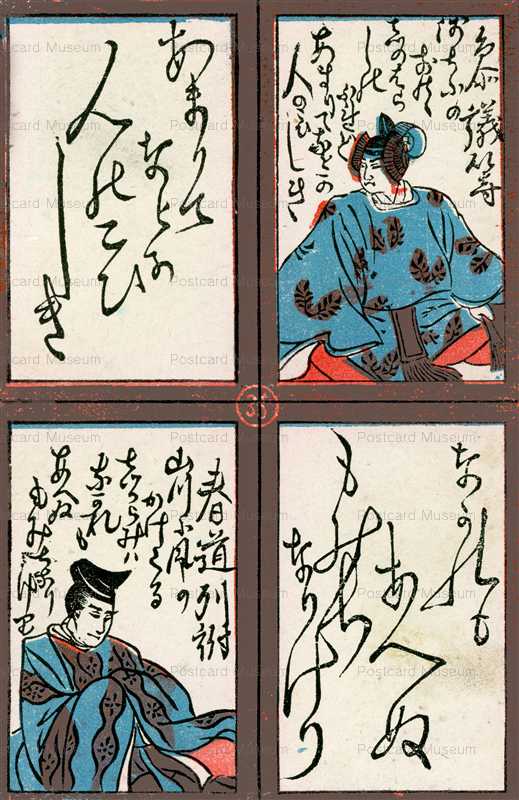 参議等
をのゝ
しのはら
しの
ぶれど
あまりてなどか
人のこひしき
あまりて
などか
人のこひ
しき
35
ながれも
あへぬ
もみち
なりけり
春道列樹
山川に風の
かけたる
しからみは
ながれも
あへぬ
もみぢなりけり
Postcard Museum